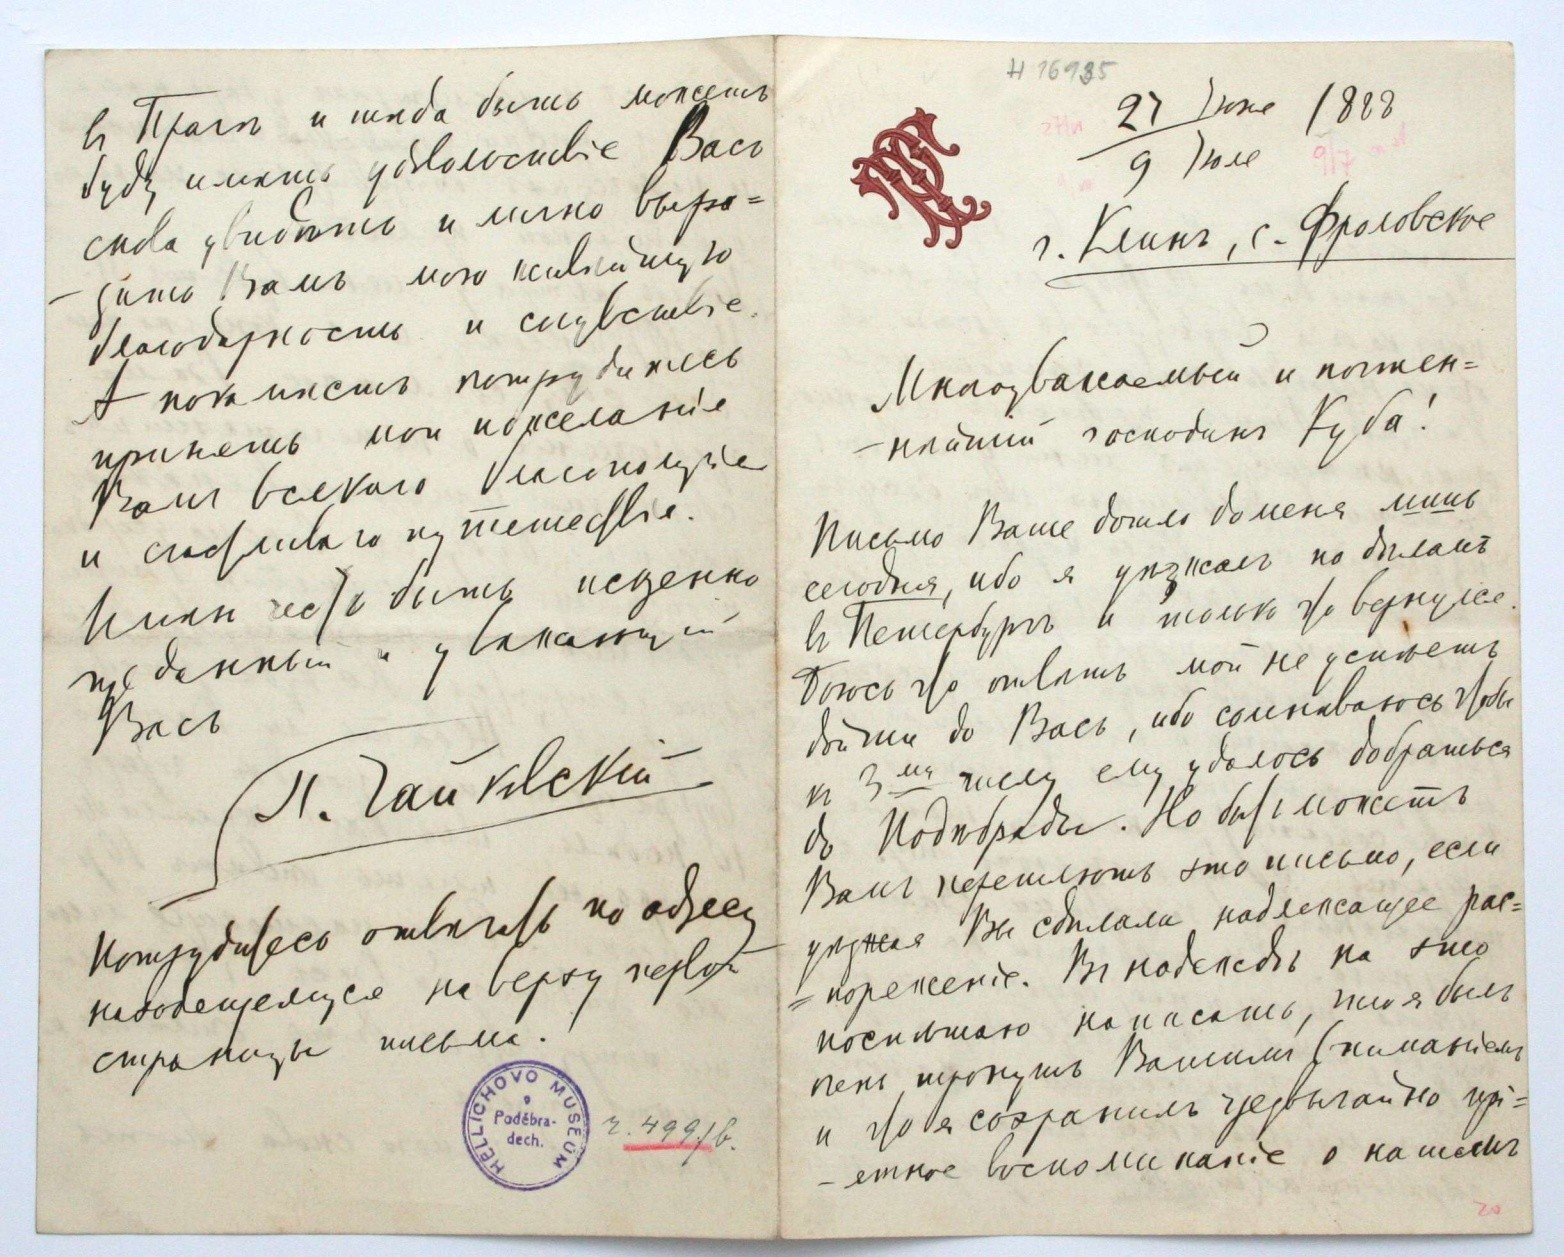 H 16935
27 Iюня 1888
9 Iюля
г. Клинъ, с. Фроловское
Многоуважаемый и почтен=
–нѣйшiй господинъ Куба!
Письмо Ваше дошло до меня лишь
сегодня, ибо я уѣзжалъ по дѣламъ
въ Петербургъ и только что вернулся.
Боюсь что отвѣтъ мой не успѣетъ
дойти до Васъ, ибо сомнѣваюсь чтобы
къ 3му числу ему удалось добраться
до Подѣбрады. Но быть можетъ
Вамъ перешлютъ это письмо, если
уѣзжая Вы сдѣлали надлежащее рас=
=поряженiе. Въ надеждѣ на это
поспѣшаю написать, что я былъ
очень тронутъ Вашимъ вниманiемъ
и что я сохранилъ чрезвычайно прi=
–ятное воспоминанiе о нашемъ
20
въ Прагѣ и тогда быть можетъ
буду имѣть удовольствiе Васъ
снова увидѣть и лично выра=
–зить Вамъ мою живѣйшую
благодарность и сочувствiе.
А покамѣстъ потрудитесь
принять мои пожеланiя
Вамъ всякаго благополучiя
и счастливаго путешествiя.
Имѣю честь быть искренно
преданный и уважающiй
Васъ
П. Чайковскiй
Потрудитесь отвѣчать по адресу
находящемуся на верху первой
страницы письма.
HELLICHOVO MUSEUM
v
Poděbra-
dech.
č. 499/b.